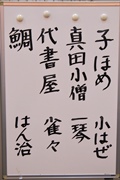 子ほめ 小はぜ
真田小僧 一琴
代書屋 雀々
鯛 はん治